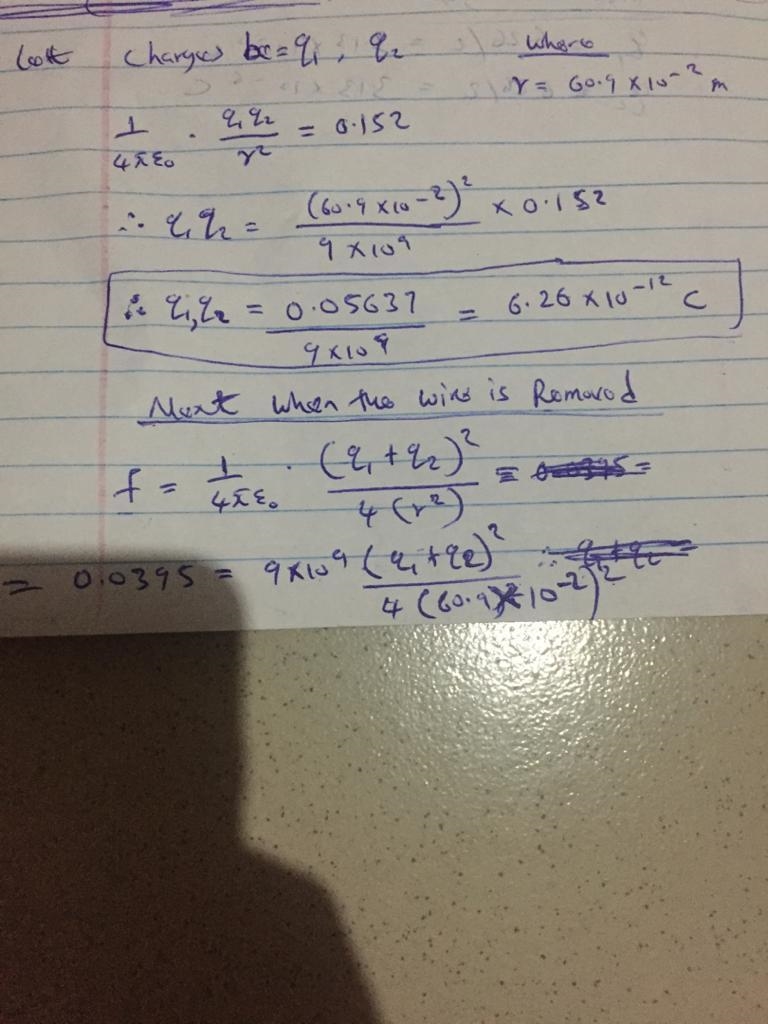 Let charges be = q₁, q₂ where
r = 60.9 × 10⁻² m
1/4πε₀ · q₁q₂/r² = 0.152
∴ q₁q₂ = (60.9 × 10⁻²)²/9 × 10⁹ × 0.152
∴ q₁q₂ = 0.05637/9 × 10⁹ = 6.26 × 10⁻¹² C
Next when the wire is Removed
f = 1/4πε₀ · (q₁ + q₂)²/4(r²) =
= 0.0395 = 9×10⁹ (q₁ + q₂)²/4(60.9 × 10⁻²)²